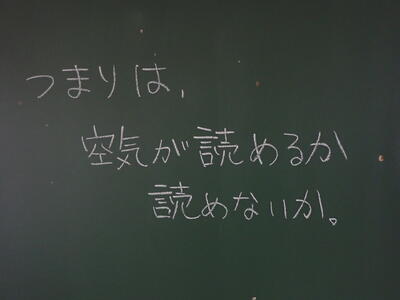 つまりは、
空気が読めるか
読めないか。